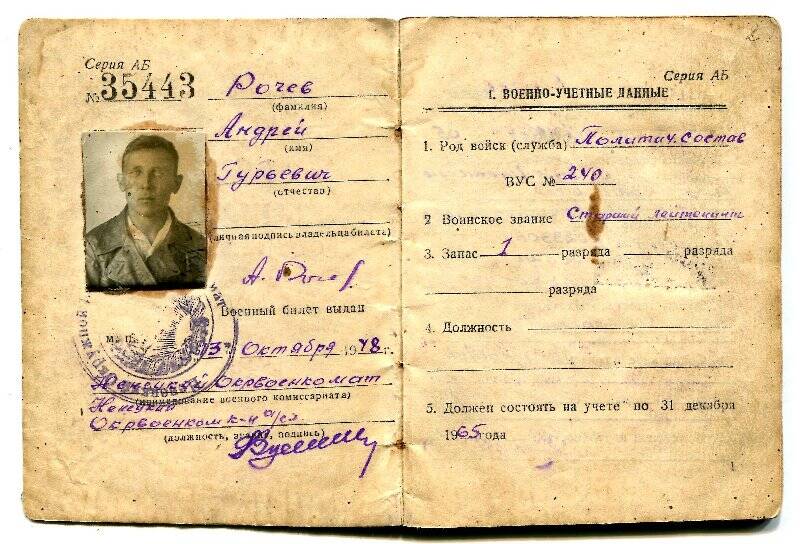 Серия АБ
№ 35443
Рочев
(фамилия)
Андрей
(имя)
Гурьевич
(отчество)
(личная подпись владельца билета)
А. Рочев
Военный билет выдан
М. П.
13 Октября 1948 г.
Ненецкий Окрвоенкомат
(наименование военного комиссариата)
Ненецкий
Окрвоенком к-н а/сз
(должность, звание, подпись)
Серия АБ
I. ВОЕННО-УЧЕТНЫЕ ДАННЫЕ
1. Род войск (служба) Политич. состав
ВУС № 240
2 Воинское звание Старший лейтенант
3. Запас 1 разряда разряда
разряда
4. Должность
5. Должен состоять на учете по 31 декабря
1965 года